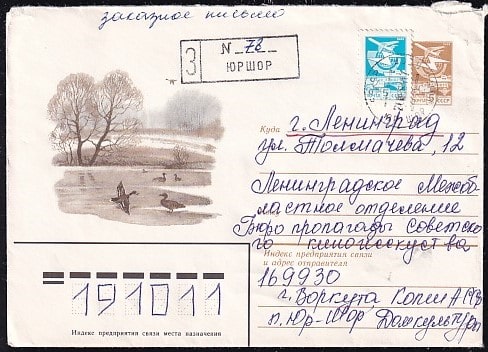 заказное письмо
З
№ 78
ЮРШОР
СССР
Куда г. Ленинград
ул. Толмачева, 12
Ленинградское Межоб-
ластное отделение
Бюро пропаганды Советско-
го киноискусства
Индекс предприятия связи
и адрес отправителя
169930
г. Воркута Коми АССР
п. Юр-Шор
191011
Индекс предприятия связи места назначения